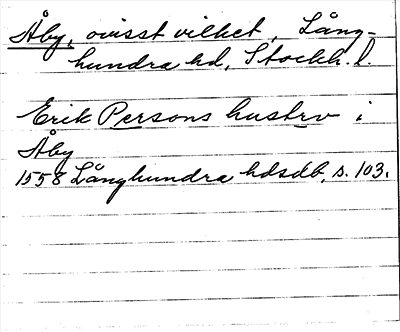 Åby, ovisst vilket, Lång-
hundra hd, Stockh. l.
Erik Persons hustrv i
Åby
1558 Långhundra hdsdb, s. 103.